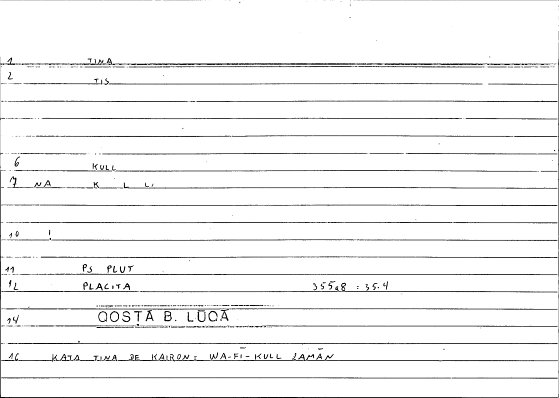 1 TINA
2 TIS
6 KULL
7 NA K L L
10 !
11 PS PLUT
12 PLACITA 355a8 : 35.4
14 QOSTĀ B. LŪQĀ
16 KATA TINA DE KAIRON: WA-FĪ-KULL ZAMĀN